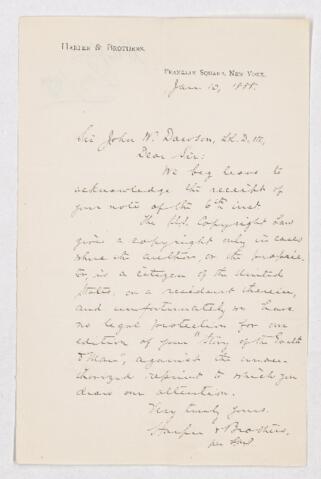 HARPER & BROTHERS.
FRANKLIN SQUARE, NEW YORK.
Jan. 10, 1888.
Sir John W. Dawson, LL.D. etc,
Dear Sir:
We beg leave to
acknowledge the receipt of
your note of the 6th inst.
The U.S. Copyright Law
gives a copyright only in cases
where the author, or the proprie-
tor, is a citizen of the United
States, or a resident therein,
and unfortunately we have
no legal protection for our
edition of your "Story of the Earth
& Man", against the unau-
thorized reprint to which you
draw our attention.
Very truly yours.
Harper & Brothers.
per